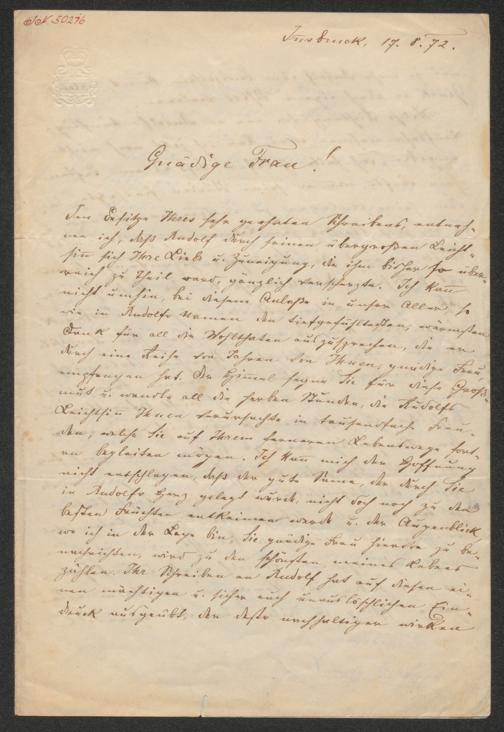 I.N. 50276
Innsbruck, 17. 8. 72.
Gnädige Frau!
Im Besitze Ihres sehr geehrten Schreibens, entneh-
me ich, daß Rudolf durch seinen übergroßen Leicht-
sinn sich Ihre Liebe u. Zuneigung, die ihm bisher so über-
reich zu Theil ward, gänzlich verscherzte. Ich kann
nicht umhin, bei diesem Anlaße in unser Aller, so
wie in Rudolfs Namen den tiefgefühltesten, wärmsten
Dank für all die Wohlthaten auszusprechen, die er
durch eine Reihe von Jahren von Ihnen, gnädige Frau
empfangen hat. Der Himmel segne Sie für diese Groß-
mut u. wandle all die herben Stunden, die Rudolfs
Leichtsinn Ihnen verursachte in tausendfache Freu-
den, welche Sie auf Ihrem ferneren Lebenswege fort-
an begleiten mögen. Ich kann mich der Hoffnung
nicht entschlagen, daß der gute Same, der durch Sie
in Rudolfs Herz gelegt wurde, nicht doch noch zu den
besten Früchten entkeimen werde u. der Augenblick,
wo ich in der Lage bin, Sie gnädige Frau hievon zu be-
nachrichten, wird zu den schönsten meines Lebens
zählen. Ihr Schreiben an Rudolf hat auf diesen ei-
nen mächtigen u. sicher auch unauslöschlichen Ein-
druck ausgeübt, der desto nachhaltiger wirken